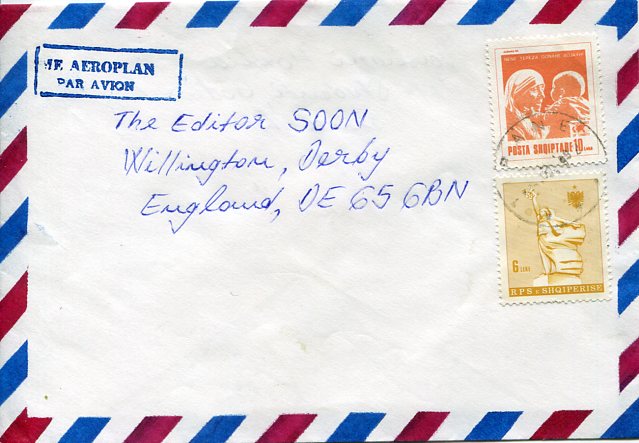 ME AEROPLAN
PAR AVION
The Editor SOON
Willington, Derby
England, DE65 6BN
NENE TEREZA GONXHE BOJAXHI
POSTA SHQIPTARE 10 LEKE
6 LEKE
RPS E SHQIPERISE